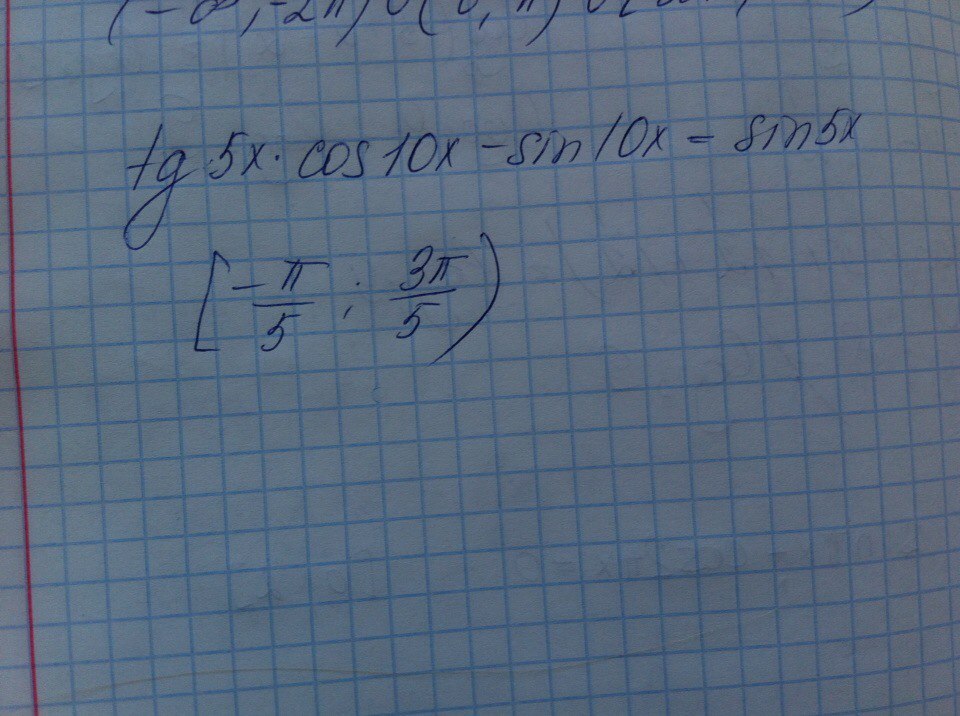 tg 5x · cos 10x - sin 10x = sin 5x
[-π/5 ; 3π/5)